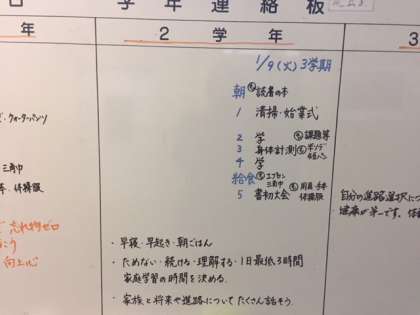 学年連絡板
年
2 学 年
3
1/9(火) 3学期
朝 読書の本
1 清掃・始業式
2 学 課題等
3 身体計測 半ソデ
4 学
給食 エプロン 三角巾
5 書初大会 用具・手本 体操服
・早寝・早起き・朝ごはん
・ためない・続ける・理解する・1日最低3時間
家庭学習の時間を決める。
・家族と将来や進路についてたくさん話そう。
・クォーターパンツ
三角巾
・体操服
忘れ物ゼロ
向上心
自分の進路選択につ
健康が第一です。体